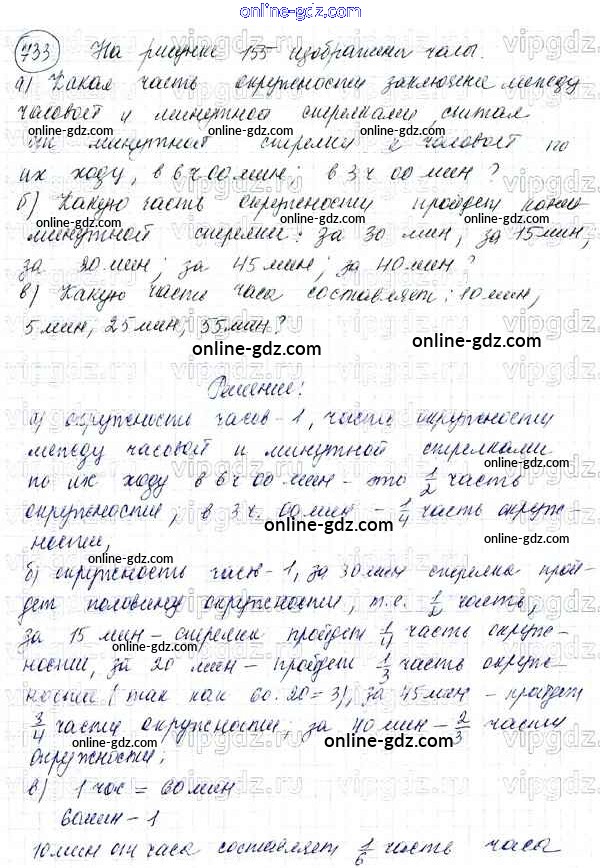 online-gdz.com
733 На рисунке 155 изображены часы.
а) Какая часть окружности заключена между
часовой и минутной стрелками считая
минутной стрелки к часовой по
их ходу, в 6 ч 00 мин; в 3 ч 00 мин?
б) Какую часть окружности пройдет конец
минутной стрелки: за 30 мин; за 15 мин;
за 20 мин; за 45 мин; за 40 мин?
в) Какую часть часа составляет: 10 мин,
5 мин, 25 мин, 55 мин?
Решение:
а) окружность часов - 1, часть окружности
между часовой и минутной стрелками
по их ходу в 6 ч 00 мин - это 1/2 часть
окружности, в 3 ч. 00 мин - 1/4 часть окруж-
ности,
б) окружность часов - 1, за 30 мин стрелка прой-
дет половину окружности, т.е. 1/2 часть,
за 15 мин - стрелка пройдет 1/4 часть окруж-
ности, за 20 мин - пройдет 1/3 часть окруж-
ности (так как 60:20=3), за 45 мин - пройдет
3/4 части окружности; за 40 мин - 2/3 части
окружности;
в) 1 час = 60 мин
60 мин - 1
10 мин от часа составляет 1/6 часть часа